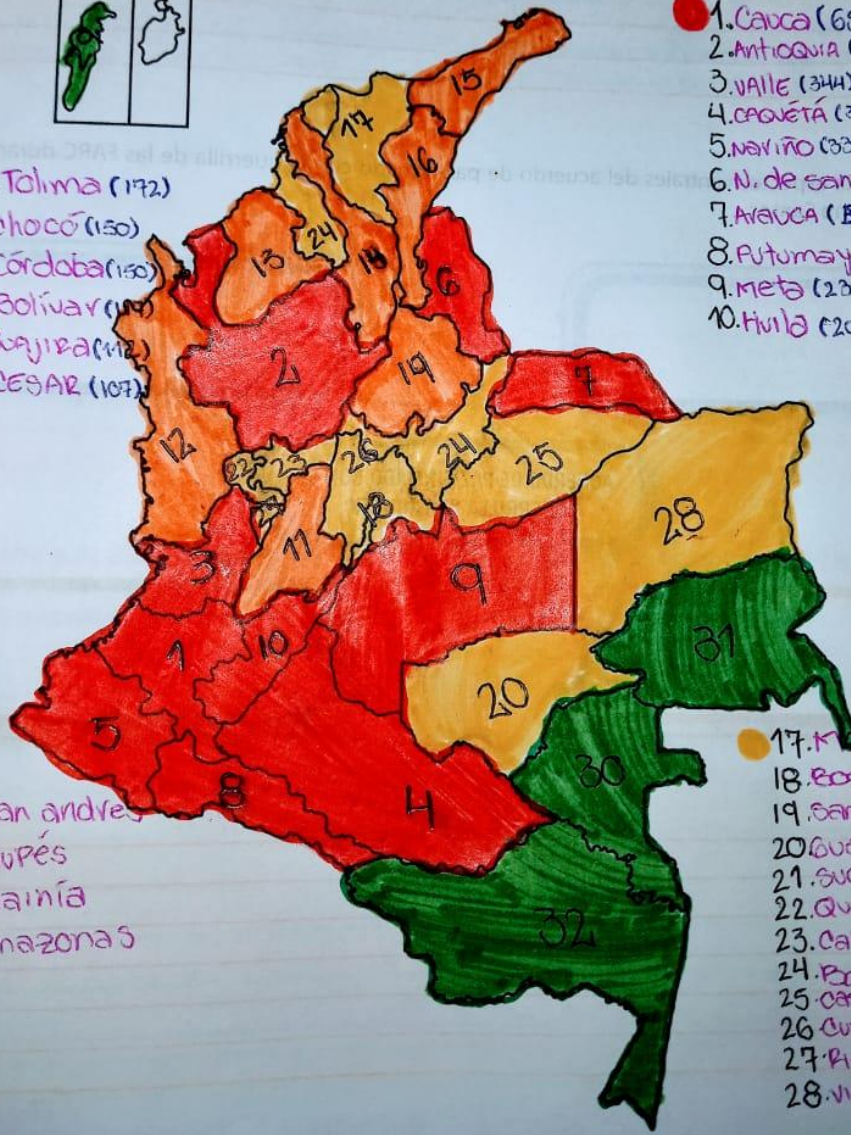 1. Cauca (68
2. Antioquia (
3. valle (344)
4. caquetá (3
5. Nariño (33
6. N. de san
7. Arauca (
8. Putumay
9. meta (23
10. Huila (20
Tolima (172)
chocó (150)
Córdoba (150)
Bolívar (
uajira (112)
CESAR (107)
15
17
16
24
13
14
6
2
19
7
12
22
23
26
24
25
18
28
11
3
9
31
1
10
20
5
30
8
4
32
an andres
upés
ainía
mazonas
17. M
18. Bo
19. San
20 Gua
21. Suc
22. Qu
23. Ca
24. Bo
25. cas
26 Cu
27. Ri
28. Vi